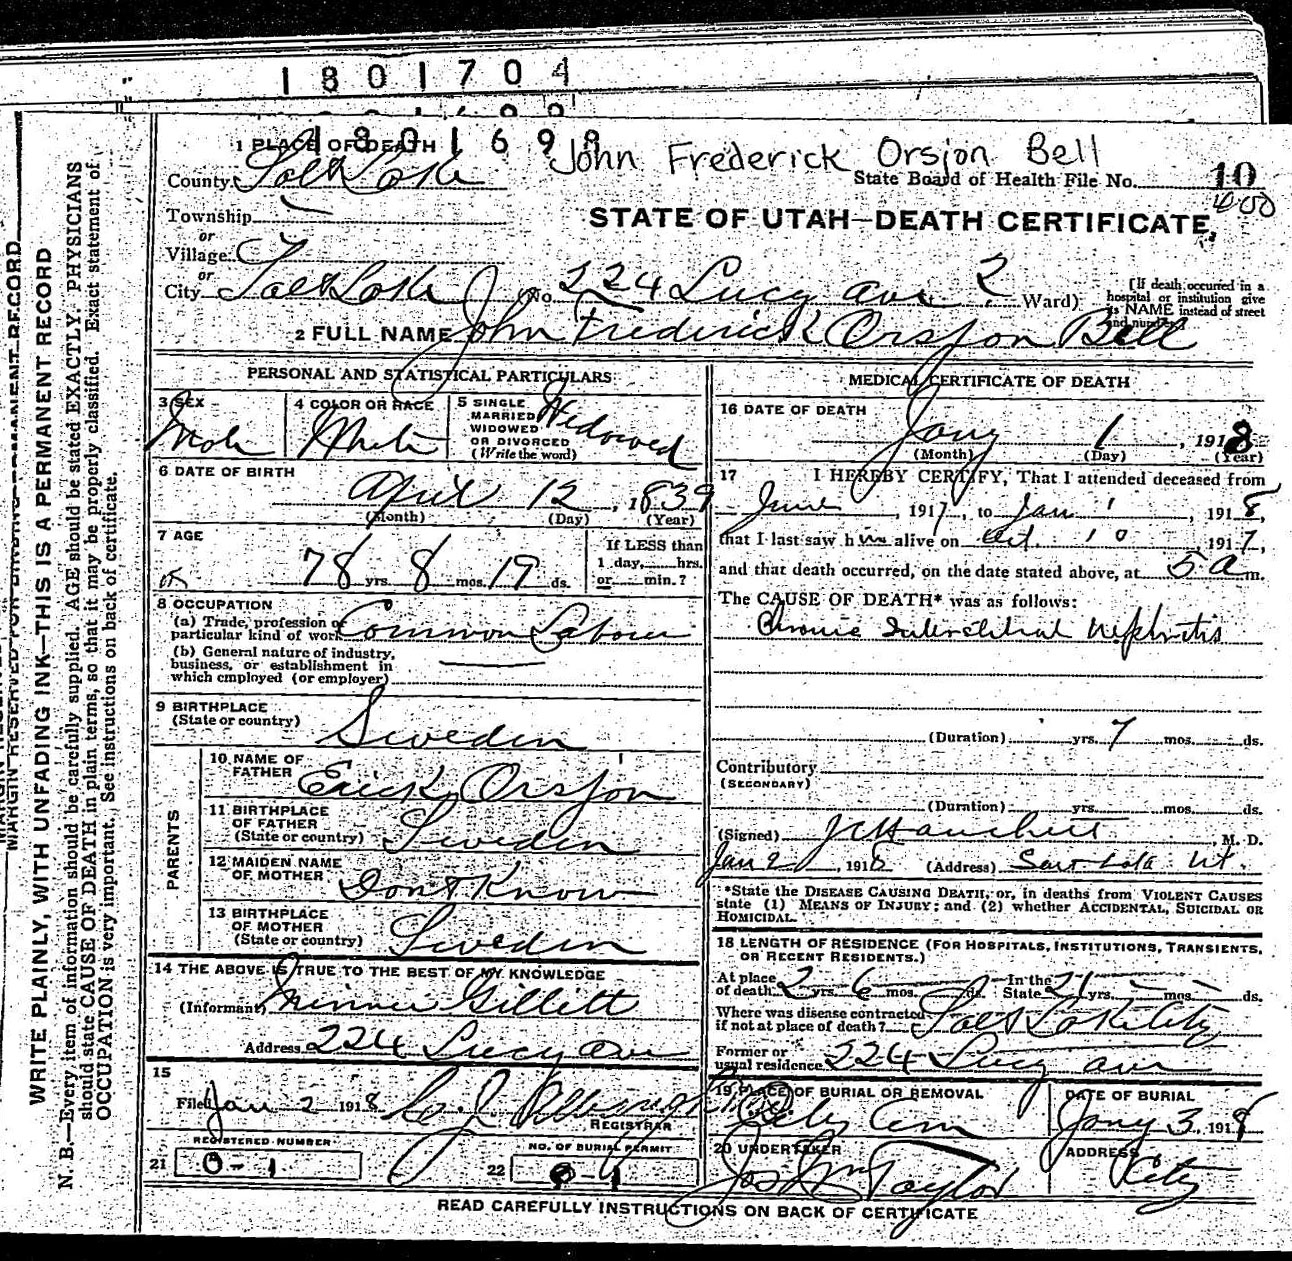 1801704
1801698
John Frederick Orsjon Bell
1 PLACE OF DEATH
County Salt Lake
State Board of Health File No. 10
400
Township
STATE OF UTAH—DEATH CERTIFICATE.
or
Village
or
City Salt Lake No. 224 Lucy ave 2 Ward)
[If death occurred in a hospital or institution give its NAME instead of street and number.]
2 FULL NAME John Frederick Orsjon Bell
PERSONAL AND STATISTICAL PARTICULARS
3 SEX
Male
4 COLOR OR RACE
White
5 SINGLE
MARRIED
WIDOWED
OR DIVORCED
(Write the word)
Widowed
6 DATE OF BIRTH
April 12, 1839
(Month) (Day) (Year)
7 AGE
78 yrs. 8 mos. 19 ds.
If LESS than
1 day,....hrs.
or....min.?
8 OCCUPATION
(a) Trade, profession or
particular kind of work Common Labour
(b) General nature of industry,
business, or establishment in
which employed (or employer)
9 BIRTHPLACE
(State or country)
Sweden
PARENTS
10 NAME OF
FATHER
Erick Orsjon
11 BIRTHPLACE
OF FATHER
(State or country)
Sweden
12 MAIDEN NAME
OF MOTHER
Dont Know
13 BIRTHPLACE
OF MOTHER
(State or country)
Sweden
14 THE ABOVE IS TRUE TO THE BEST OF MY KNOWLEDGE
(Informant) Minnie Gillett
Address 224 Lucy ave
15
Filed Jan 2 1918
REGISTRAR
REGISTERED NUMBER
21 0-1
NO. OF BURIAL PERMIT
22
MEDICAL CERTIFICATE OF DEATH
16 DATE OF DEATH
Jany 1, 1918
(Month) (Day) (Year)
17 I HEREBY CERTIFY, That I attended deceased from
June, 1917, to Jan 1, 1918,
that I last saw him alive on Oct. 10 1917,
and that death occurred, on the date stated above, at 5 a m.
The CAUSE OF DEATH* was as follows:
Chronic Interstitial Nephritis
(Duration) yrs. 7 mos. ds.
Contributory
(SECONDARY)
(Duration) yrs. mos. ds.
(Signed) M. D.
Jan 2, 1918 (Address) Salt Lake Ut.
*State the DISEASE CAUSING DEATH, or, in deaths from VIOLENT CAUSES
state (1) MEANS OF INJURY; and (2) whether ACCIDENTAL, SUICIDAL OR
HOMICIDAL.
18 LENGTH OF RESIDENCE (FOR HOSPITALS, INSTITUTIONS, TRANSIENTS,
OR RECENT RESIDENTS.)
At place
of death 2 yrs. 6 mos. ds. In the
State 21 yrs. mos. ds.
Where was disease contracted
if not at place of death? Salt Lake City
Former or
usual residence 224 Lucy ave
19 PLACE OF BURIAL OR REMOVAL
City Cem
DATE OF BURIAL
Jany 3, 1918
20 UNDERTAKER
Jos Wm Taylor
ADDRESS
City
READ CAREFULLY INSTRUCTIONS ON BACK OF CERTIFICATE
MARGIN RESERVED FOR BINDING
WRITE PLAINLY, WITH UNFADING INK—THIS IS A PERMANENT RECORD
N. B.—Every item of information should be carefully supplied. AGE should be stated EXACTLY. PHYSICIANS
should state CAUSE OF DEATH in plain terms, so that it may be properly classified. Exact statement of
OCCUPATION is very important. See instructions on back of certificate.